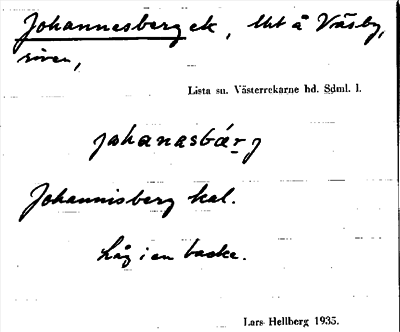 Johannesberg ek, lht å Väsby,
riven,
Lista sn. Västerrekarne hd. Sdml. l.
johanasbárj
Johannisberg kal.
Låg i en backe.
Lars Hellberg 1935.